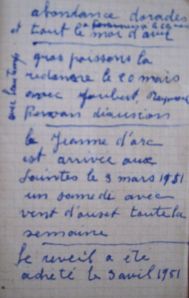 abondance dorades
et tout le mois d'avril
gros poissons la
le 20 mais
avec Joubert, Raymond
la Jeanne d'arc
est arrivée aux
Saintes le 3 mars 1951
un samedi avec
vent d'ouest toute la
semaine
le reveil a été
acheté le 3 avril 1951